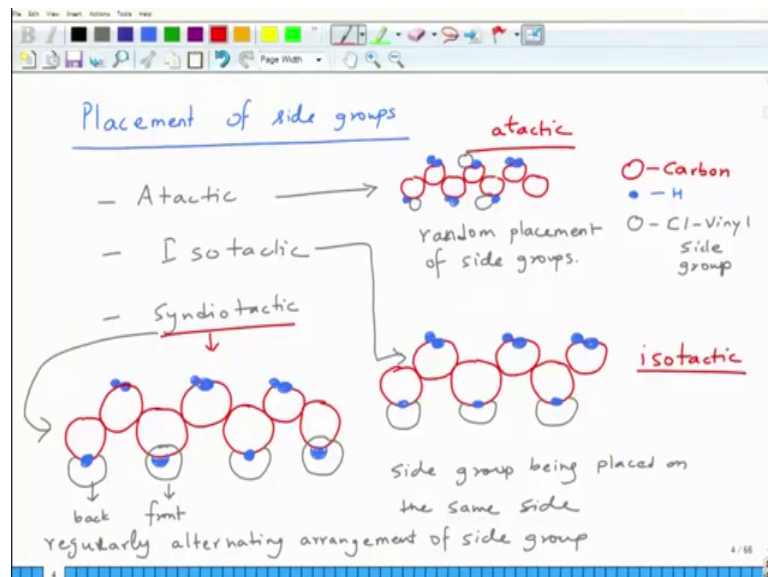 File Edit View Insert Actions Tools Help
B I
Page Width
Placement of side groups
atactic
- Atactic
- Isotactic
- Syndiotactic
random placement
of side groups.
O - Carbon
• - H
O - Cl - Vinyl
side
group
isotactic
side group being placed on
the same side
back
front
regularly alternating arrangement of side group
4 / 66